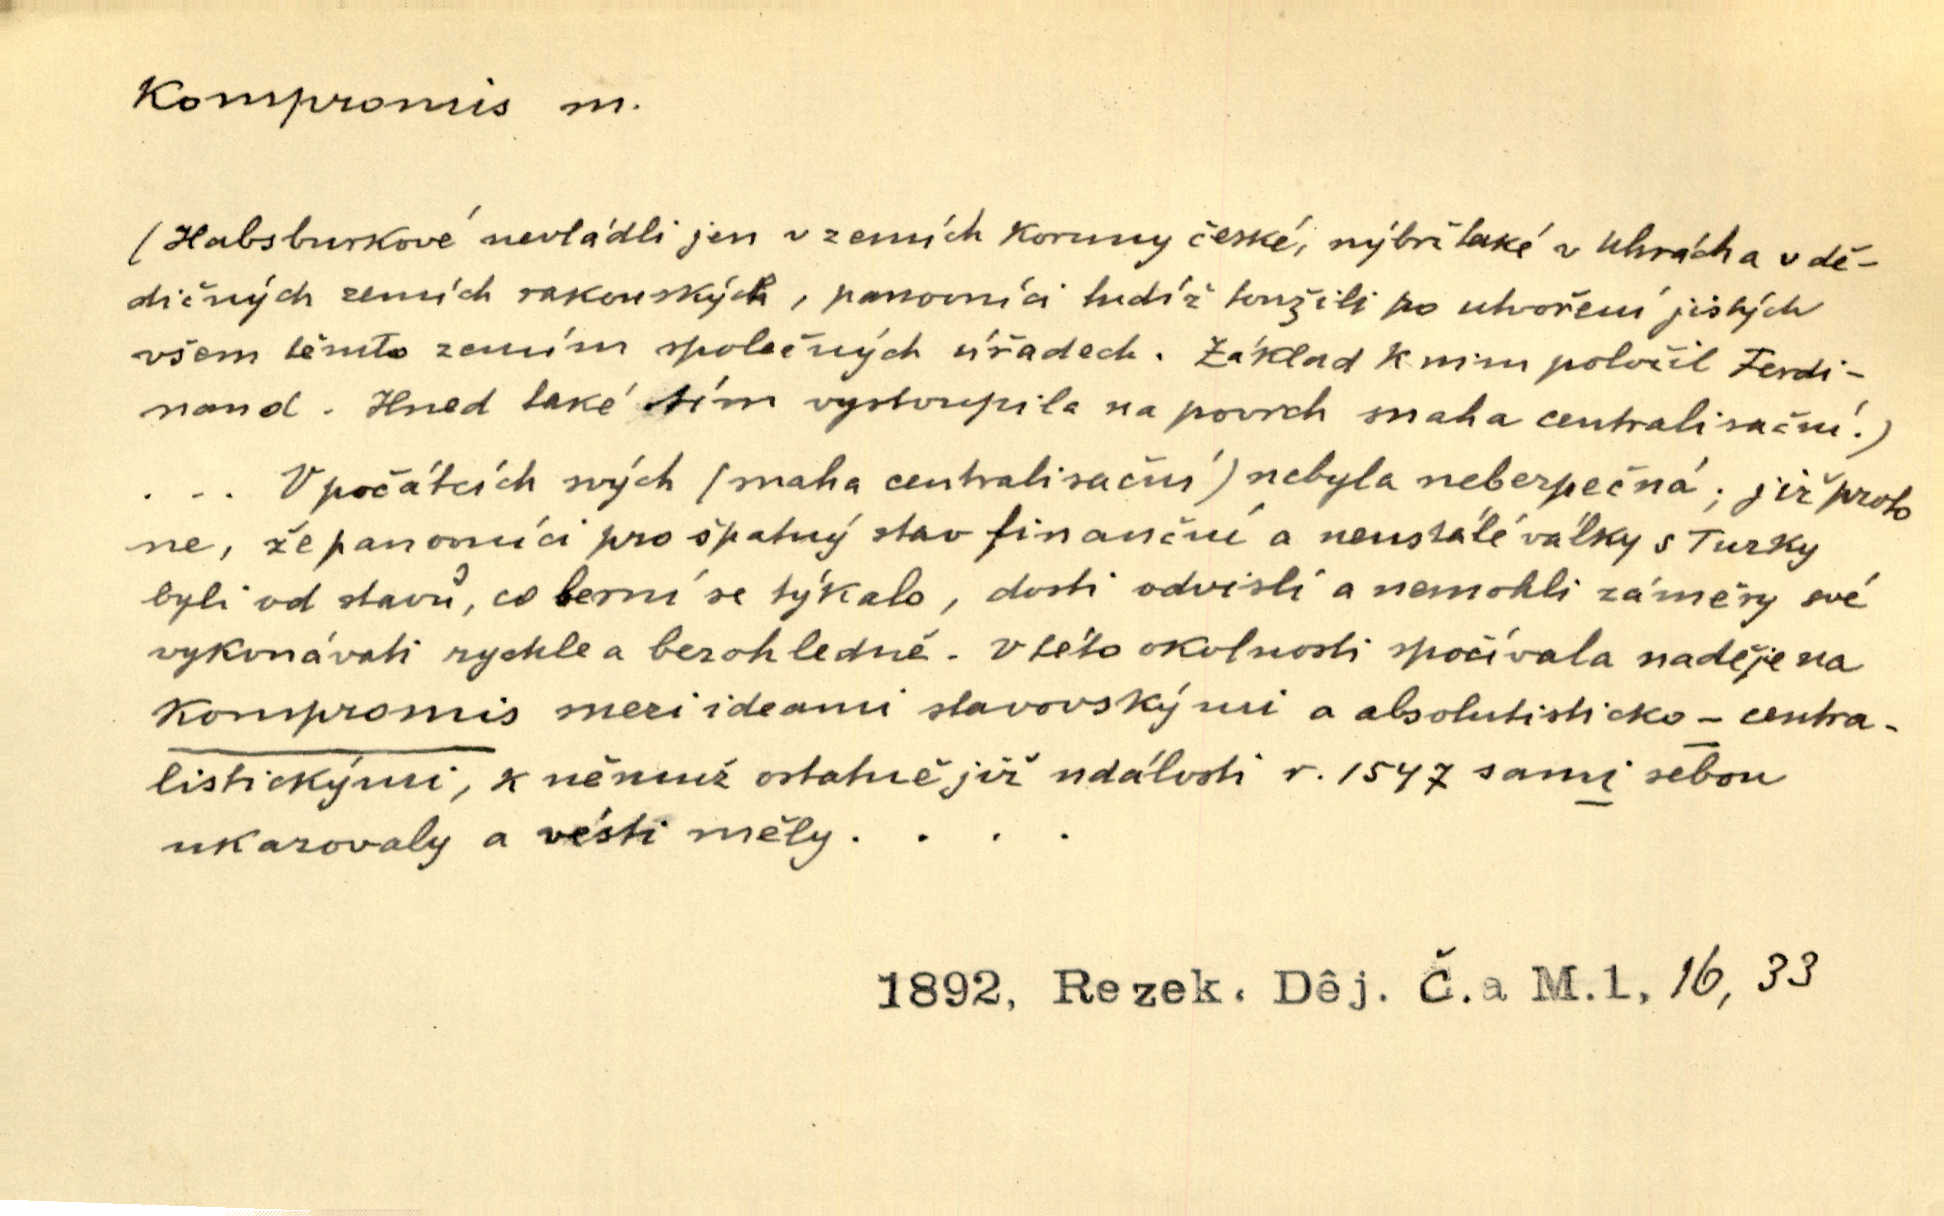 Kompromis m.
(Habsburkové nevládli jen v zemích Koruny české, nýbrž také v Uhrách a v dě-
dičných zemích rakouských, panovníci tudíž toužili po utvoření jistých
všem těmto zemím společných úřadech. Základ k nim položil Ferdi-
nand. Hned také tím vystoupila na povrch snaha centralisační.)
... V počátcích svých (snaha centralisační) nebyla nebezpečná; již proto
ne, že panovníci pro špatný stav finanční a neustálé války s Turky
byli od stavů, co berní se týkalo, dosti odvislí a nemohli záměry své
vykonávati rychle a bezohledně. V této okolnosti spočívala naděje na
Kompromis mezi ideami stavovskými a absolutisticko-centra-
listickými, k němuž ostatně již události r. 1547 sami sebou
ukazovaly a vésti měly. . . .
1892, Rezek. Děj. Č. a M. 1, 16, 33